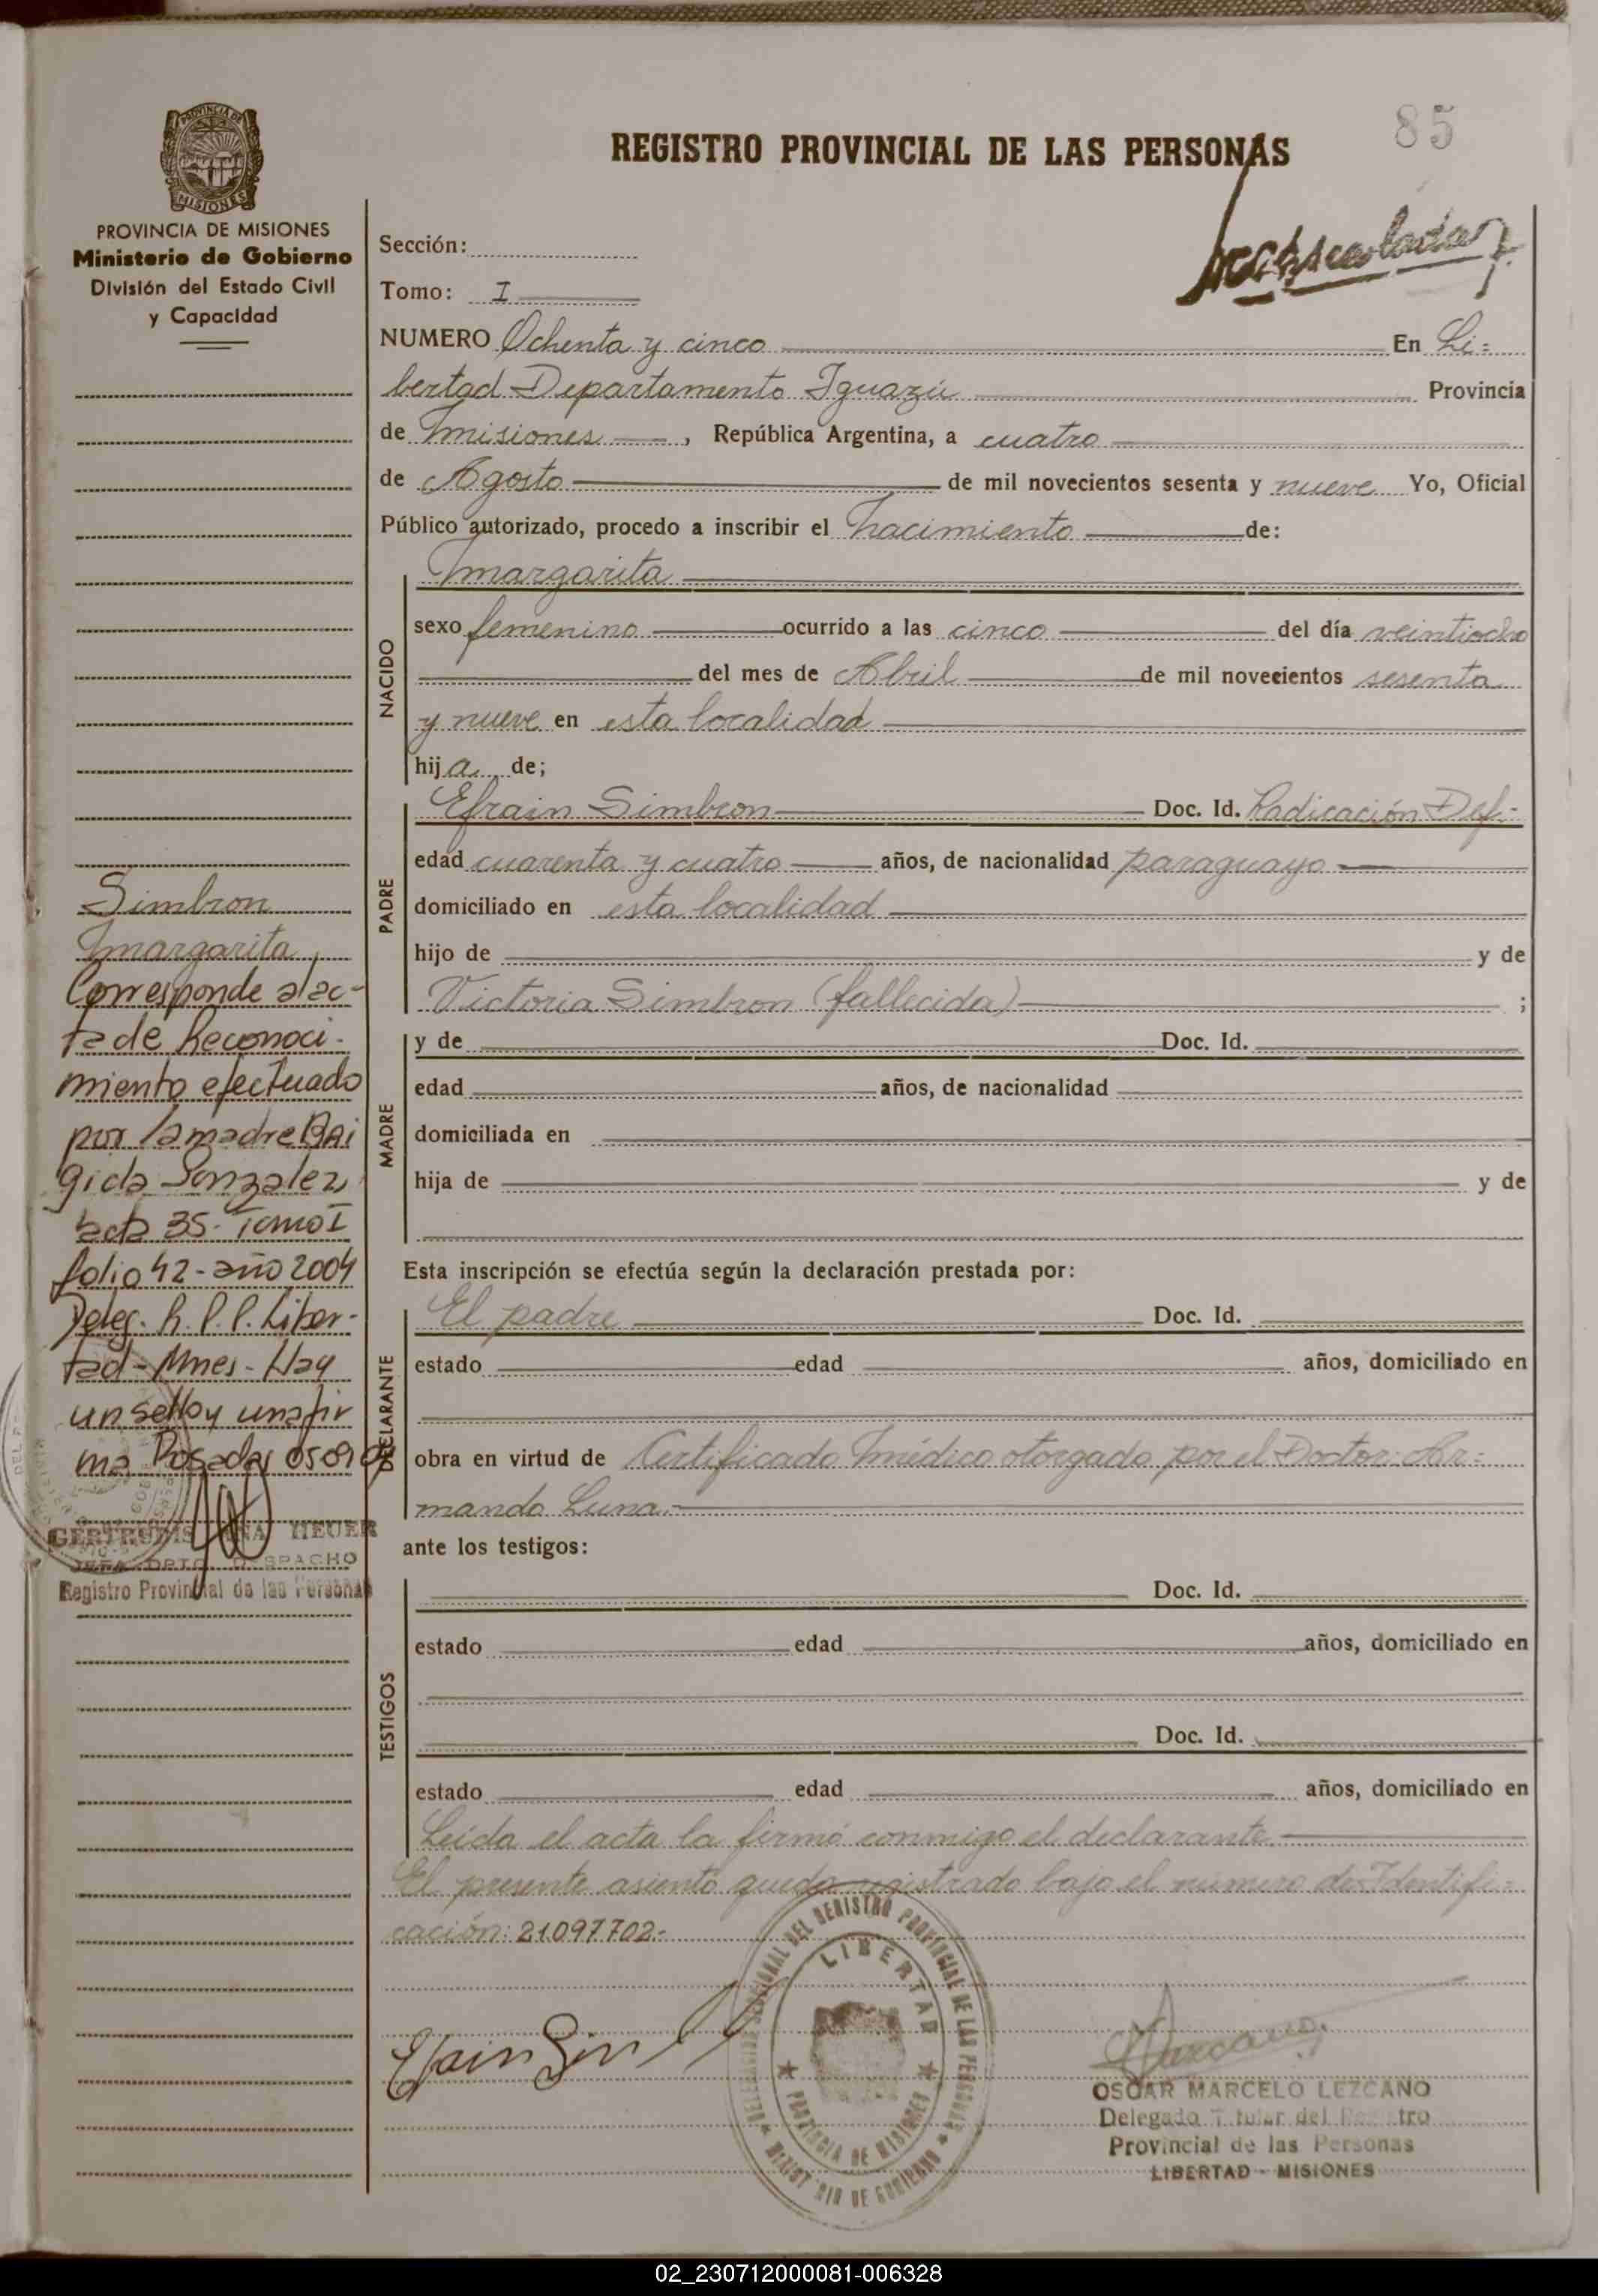 85
REGISTRO PROVINCIAL DE LAS PERSONAS
PROVINCIA DE
MISIONES
PROVINCIA DE MISIONES
Ministerio de Gobierno
División del Estado Civil
y Capacidad
Sección:
Tomo: I
NUMERO Ochenta y cinco En Li=
bertad Departamento Iguazú Provincia
de Misiones, República Argentina, a cuatro
de Agosto de mil novecientos sesenta y nueve Yo, Oficial
Público autorizado, procedo a inscribir el Nacimiento de:
NACIDO
Margarita
sexo femenino ocurrido a las cinco del día veintiocho
del mes de Abril de mil novecientos sesenta
y nueve en esta localidad
hija de;
PADRE
Efrain Simbron Doc. Id. Radicación Def.-
edad cuarenta y cuatro años, de nacionalidad paraguayo
domiciliado en esta localidad
hijo de y de
Victoria Simbron (fallecida) ;
MADRE
y de Doc. Id.
edad años, de nacionalidad
domiciliada en
hija de y de
Esta inscripción se efectúa según la declaración prestada por:
DECLARANTE
El padre Doc. Id.
estado edad años, domiciliado en
obra en virtud de Certificado Médico otorgado por el Doctor: Ar=
mando Luna.-
ante los testigos:
TESTIGOS
Doc. Id.
estado edad años, domiciliado en
Doc. Id.
estado edad años, domiciliado en
Leida el acta la firmó conmigo el declarante
El presente asiento queda registrado bajo el número de Identifi=
cación: 21.097.702.-
Simbron
Margarita
Corresponde al ac-
ta de Reconoci-
miento efectuado
por la madre Bri
gida Gonzalez
acta 35- Tomo I
folio 42- año 2004
Deleg. R.P.P. Liber-
tad- Mnes- Hay
un sello y una fir
ma Posadas 050909
GERTRUDIS ANA HEUER
JEFA DPTO. DESPACHO
Registro Provincial de las Personas
Efrain Sim
DELEGACION SECCIONAL DEL REGISTRO PROVINCIAL DE LAS PERSONAS
LIBERTAD
PROVINCIA DE MISIONES
MINISTERIO DE GOBIERNO
OSCAR MARCELO LEZCANO
Delegado Titular del Registro
Provincial de las Personas
LIBERTAD - MISIONES
02_230712000081-006328